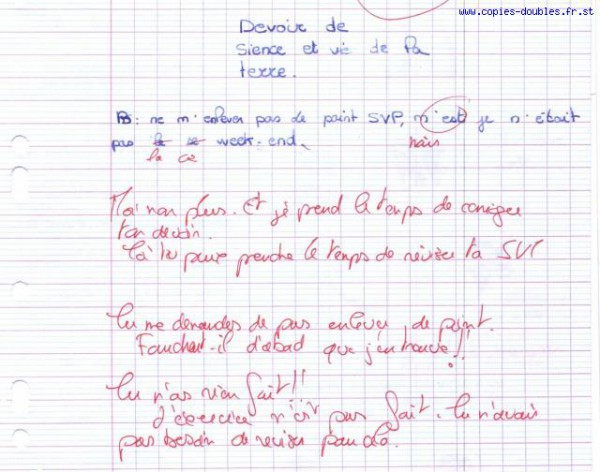 www.copies-doubles.fr.st
Devoir de
Sience et vie de la
terre.
PS: ne m'enlever pas de point SVP, m'est je n'était
pas week-end.
mais
la ce
Moi non plus. Et je prend le temps de corriger
ton devoir.
Là tu peux prendre le temps de réviser ta SVT
Tu me demandes de pas enlever de point.
Faudrait-il d'abord que j'en trouve!!
Tu n'as rien fait!!
L'exercice n'est pas fait. Tu n'avais
pas besoin de réviser pour cela.